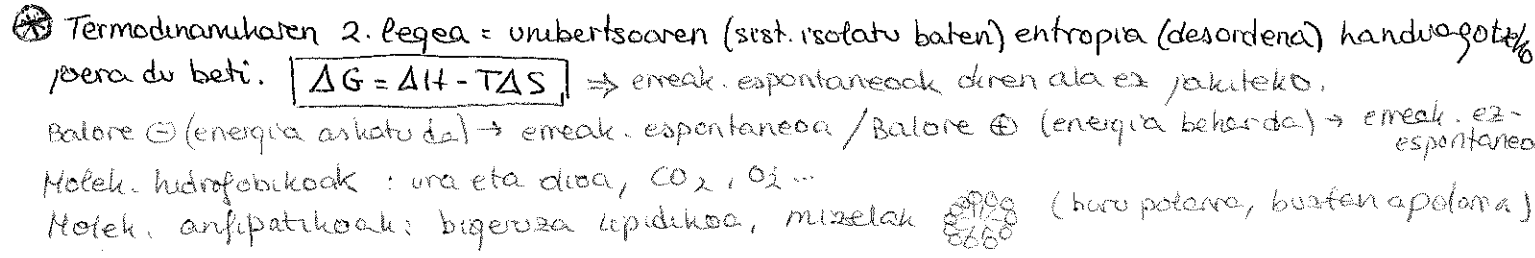 Termodinamikaren 2. legea = unibertsoaren (sist. isolatu baten) entropia (desordena) handiagotzeko
joera du beti. ΔG = ΔH - TΔS ⇒ erreak. espontaneoak diren ala ez jakiteko.
Balore ⊖ (energia askatu da) → erreak. espontaneoa / Balore ⊕ (energia behar da) → erreak. ez-espontaneo
Molek. hidrofobikoak : ura eta olioa, CO₂, O₂ ...
Molek. anfipatikoak : bigeruza lipidikoa, mizelak (buru polarra, buztan apolarra)